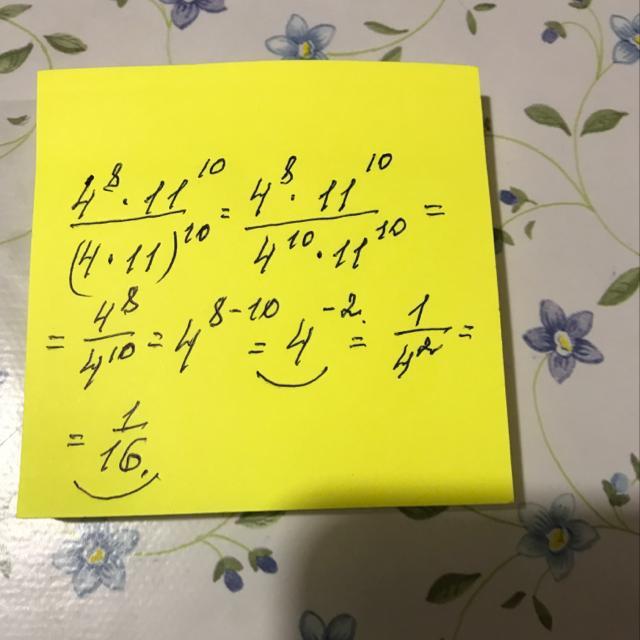 4^8 · 11^10 / (4 · 11)^10 = 4^8 · 11^10 / 4^10 · 11^10 =
= 4^8 / 4^10 = 4^8-10 = 4^-2 = 1 / 4^2 =
= 1 / 16.